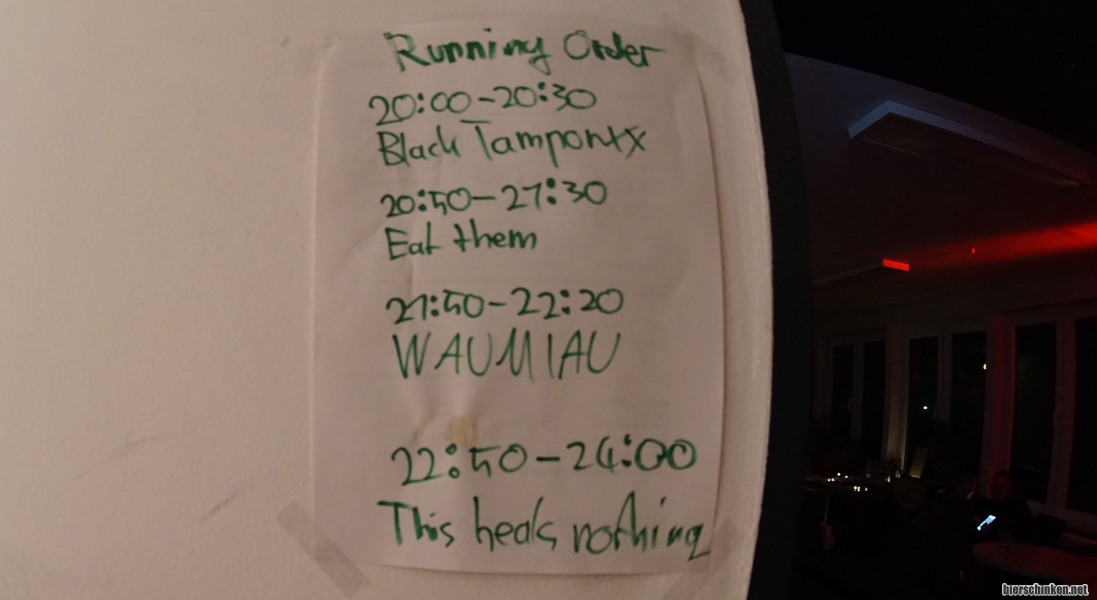 Running Order
20:00-20:30
Black Tampontx
20:50-21:30
Eat them
21:50-22:20
WAUMIAU
22:50-24:00
This heals nothing
bierschinken.net